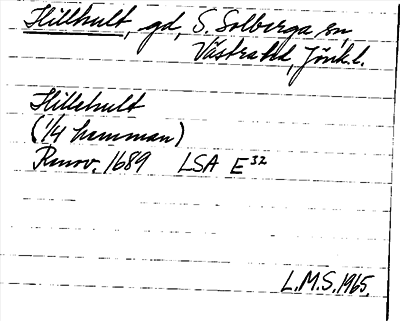 Hillhult, gd, S. Solberga sn,
Västra hd, Jönk.l.
Hillehult
(1/4 hemman)
Renov. 1689 LSA E 32
L.M.S. 1965.